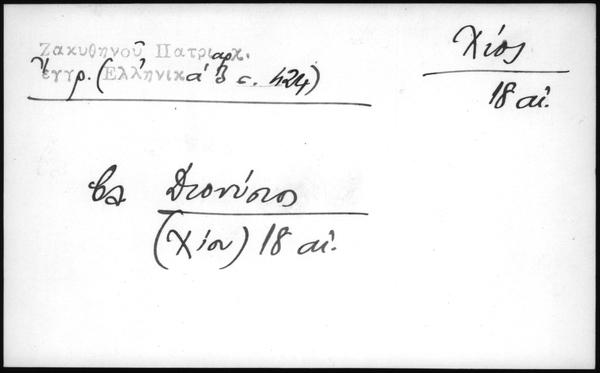 Ζακυθηνοῦ Πατριαρχ.
ἔγγρ. (Ἑλληνικὰ σ. 424)
Χίος
18 αἰ.
βλ Διονύσιος
(Χίου) 18 αἰ.